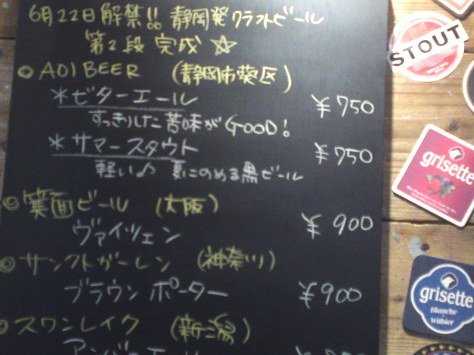 6月22日 解禁!! 静岡発クラフトビール
第2段 完成 ☆
◎ AOI BEER (静岡市葵区)
*ビターエール ¥750
すっきりした苦味がGOOD!
*サマースタウト ¥750
軽い♪ 夏にのめる黒ビール
◎ 箕面ビール (大阪)
ヴァイツェン ¥900
◎ サンクトガーレン (神奈川)
ブラウンポーター ¥900
◎ スワンレイク (新潟)
アンバーエール
STOUT
grisette
grisette
Blanche
Witbier